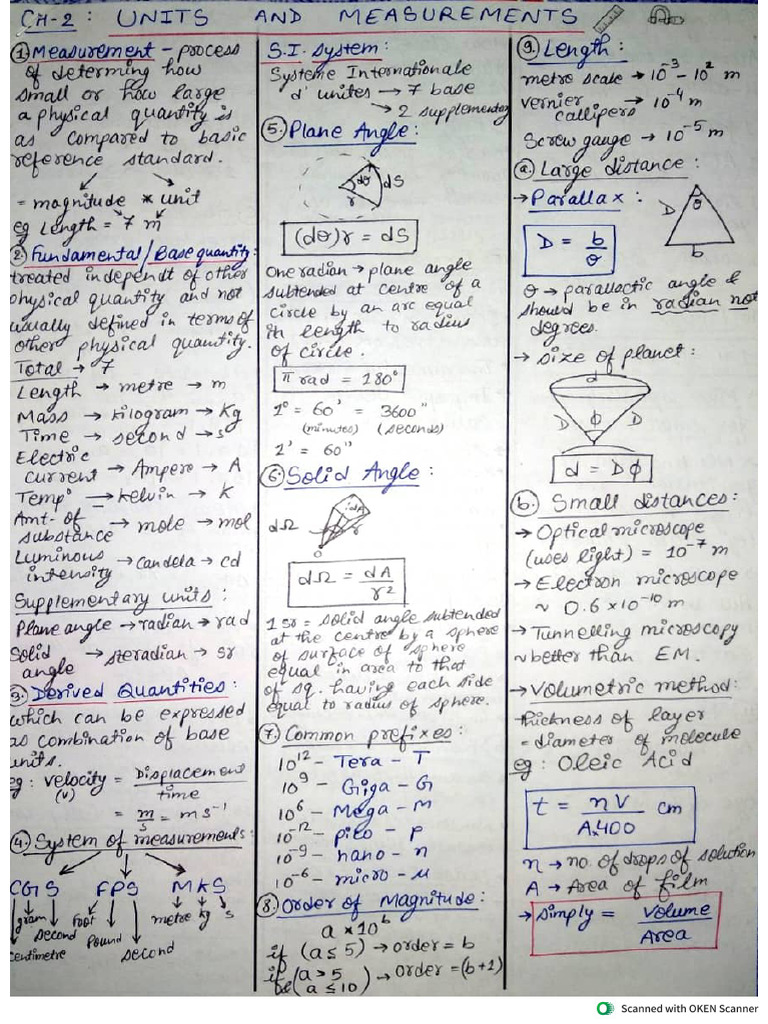 CH-2: UNITS AND MEASUREMENTS
① Measurement - process
of determing how
small or how large
a physical quantity is
as compared to basic
reference standard.
= magnitude * unit
eg Length = 7 m
② Fundamental/Base quantity:
treated independt of other
physical quantity and not
usually defined in terms of
other physical quantity.
Total → 7
Length → metre → m
Mass → kilogram → kg
Time → second → s
Electric
current → Ampere → A
Tempº → kelvin → K
Amt- of
substance → mole → mol
Luminous
intensity → candela → cd
Supplementary units:
Plane angle → radian → rad
Solid
angle → steradian → sr
③ Derived Quantities:
which can be expressed
as combination of base
units.
eg: velocity (v) = Displacement / time
= m/s = ms⁻¹
④ System of measurements:
CGS FPS MKS
gram second centimetre
Foot Pound second
metre kg s
S.I. system:
Systeme Internationale
d' unites → 7 base
→ 2 supplementary
⑤ Plane Angle:
dθ r dS
(dθ)r = dS
One radian → plane angle
subtended at centre of a
circle by an arc equal
in length to radius
of circle.
π rad = 180°
1° = 60' = 3600"
(minutes) (seconds)
1' = 60"
⑥ Solid Angle:
dΩ dA r
dΩ = dA / r²
1 sr = solid angle subtended
at the centre by a sphere
of surface of sphere
equal in area to that
of sq. having each side
equal to radius of sphere.
⑦ Common prefixes:
10¹² - Tera - T
10⁹ - Giga - G
10⁶ - Mega - M
10⁻¹² - pico - p
10⁻⁹ - nano - n
10⁻⁶ - micro - μ
⑧ Order of Magnitude:
a × 10ᵇ
if (a ≤ 5) → order = b
if (a > 5
a ≤ 10) → order = (b+1)
⑨ Length:
metre scale → 10⁻³ - 10² m
vernier
callipers → 10⁻⁴ m
Screw gauge → 10⁻⁵ m
ⓐ Large distance:
→ Parallax:
D θ b
D = b / θ
θ → parallactic angle &
should be in radian not
degrees.
→ size of planet:
d
D ϕ D
d = Dϕ
ⓑ Small distances:
→ Optical microscope
(uses light) = 10⁻⁷ m
→ Electron microscope
~ 0.6 × 10⁻¹⁰ m
→ Tunnelling microscopy
~ better than EM.
→ Volumetric method:
thickness of layer
= diameter of molecule
eg: Oleic Acid
t = nV / A×400 cm
n → no. of drops of solution
A → Area of film
→ simply = Volume / Area
Scanned with OKEN Scanner